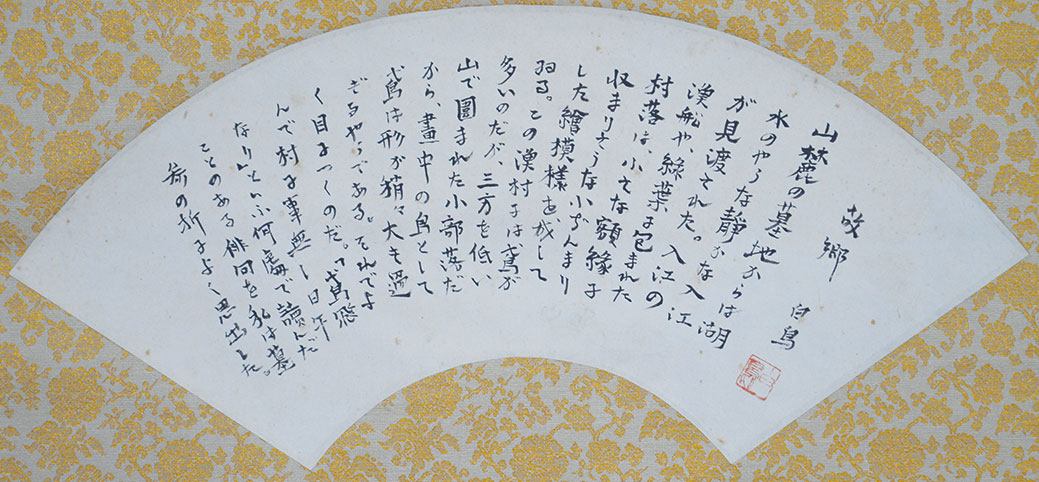 故郷
白鳥
山麓の墓地からは湖
水のやうな静かな入江
が見渡された。入江の
漁船や、緑葉に包まれた
村落は、小さな額縁に
収まりさうな小ぢんまり
した繪模様を成して
ゐる。この漁村には鳶が
多いのだが、三方を低い
山で圍まれた小部落だ
から、畫中の鳥として
鳶は形が稍々大き過
ぎるやうである。それでよ
く目につくのだ。「鳶飛
んで村に事無し日午
なり」といふ何處で讀んだ
ことのある俳句を私は墓
參の折によく思出した。